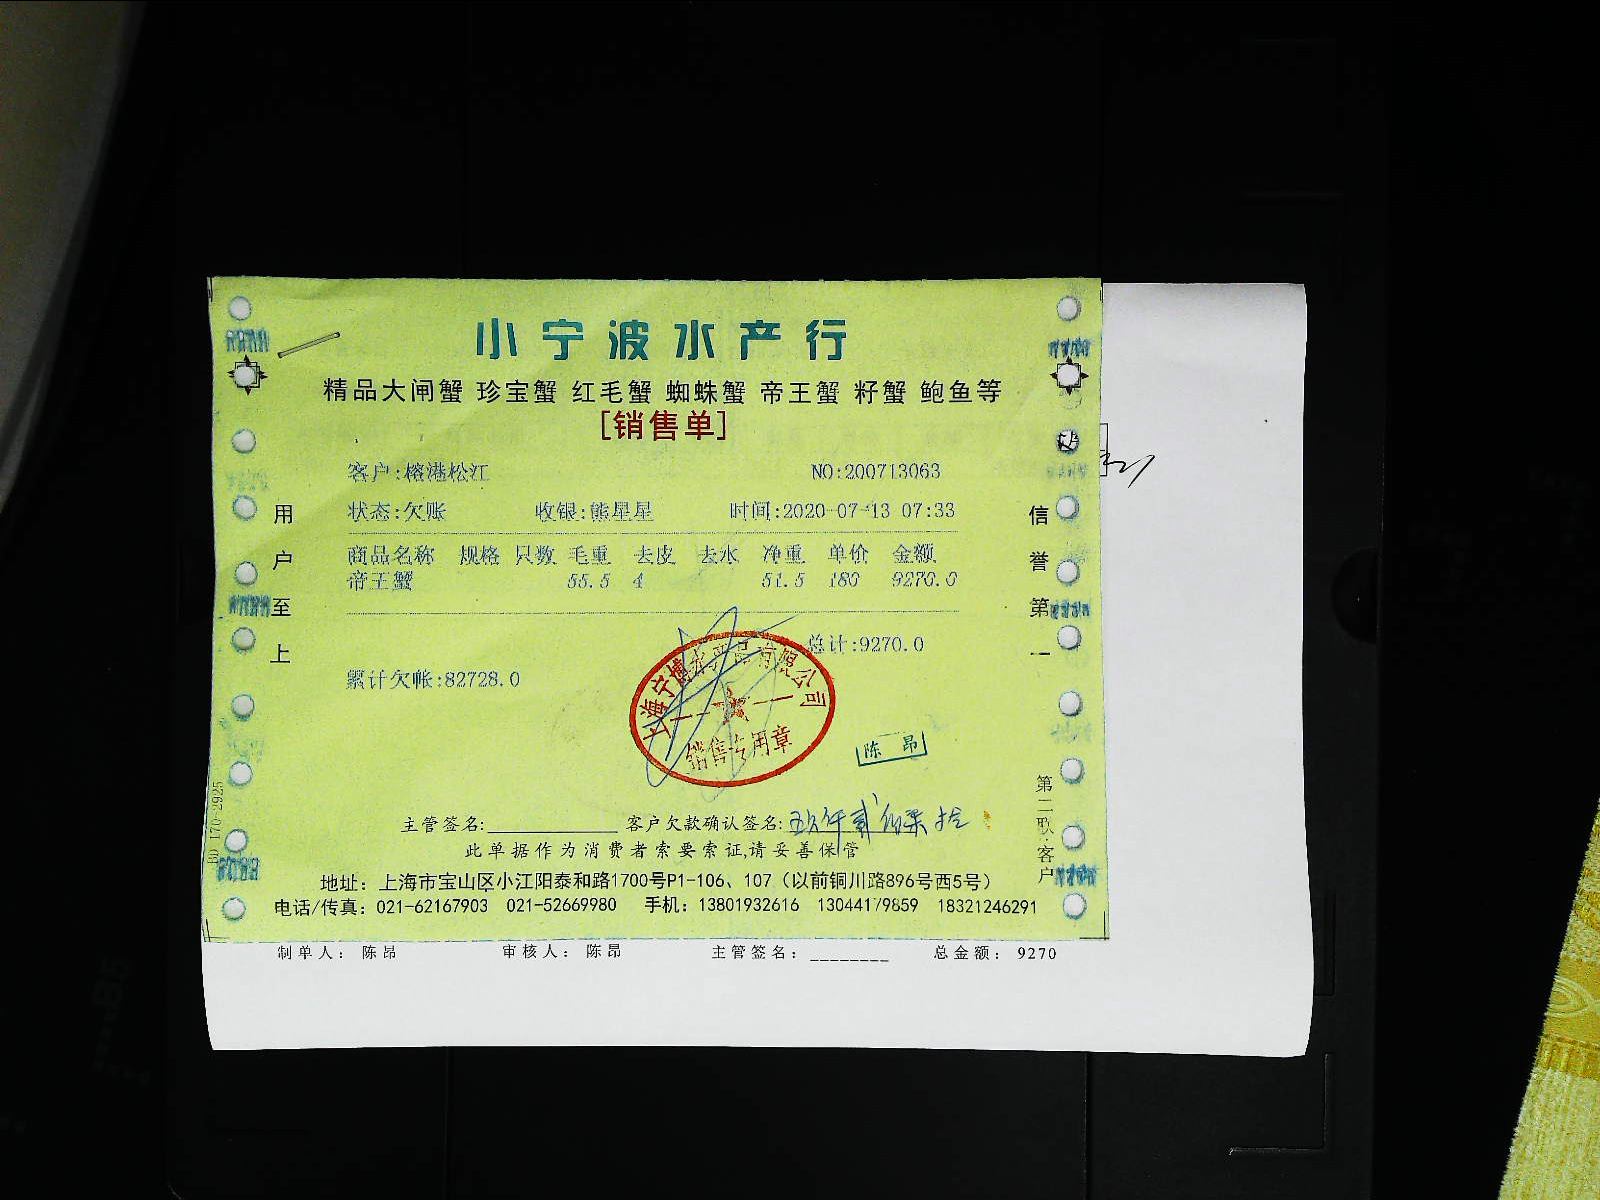 小宁波水产行
精品大闸蟹 珍宝蟹 红毛蟹 蜘蛛蟹 帝王蟹 籽蟹 鲍鱼等
[销售单]
客户:榕港松江 NO:200713063
状态:欠账 收银:熊星星 时间:2020-07-13 07:33
商品名称 规格 只数 毛重 去皮 去水 净重 单价 金额
帝王蟹 55.5 4 51.5 180 9270.0
总计:9270.0
累计欠帐:82728.0
上海宁博水产品有限公司
销售专用章
陈昂
用户至上
信誉第一
第二联:客户
BD 170-2925
主管签名: 客户欠款确认签名:玖仟贰佰柒拾
此单据作为消费者索要索证,请妥善保管
地址：上海市宝山区小江阳泰和路1700号P1-106、107（以前铜川路896号西5号）
电话/传真：021-62167903 021-52669980 手机：13801932616 13044179859 18321246291
制单人： 陈昂 审核人： 陈昂 主管签名：________ 总金额： 9270